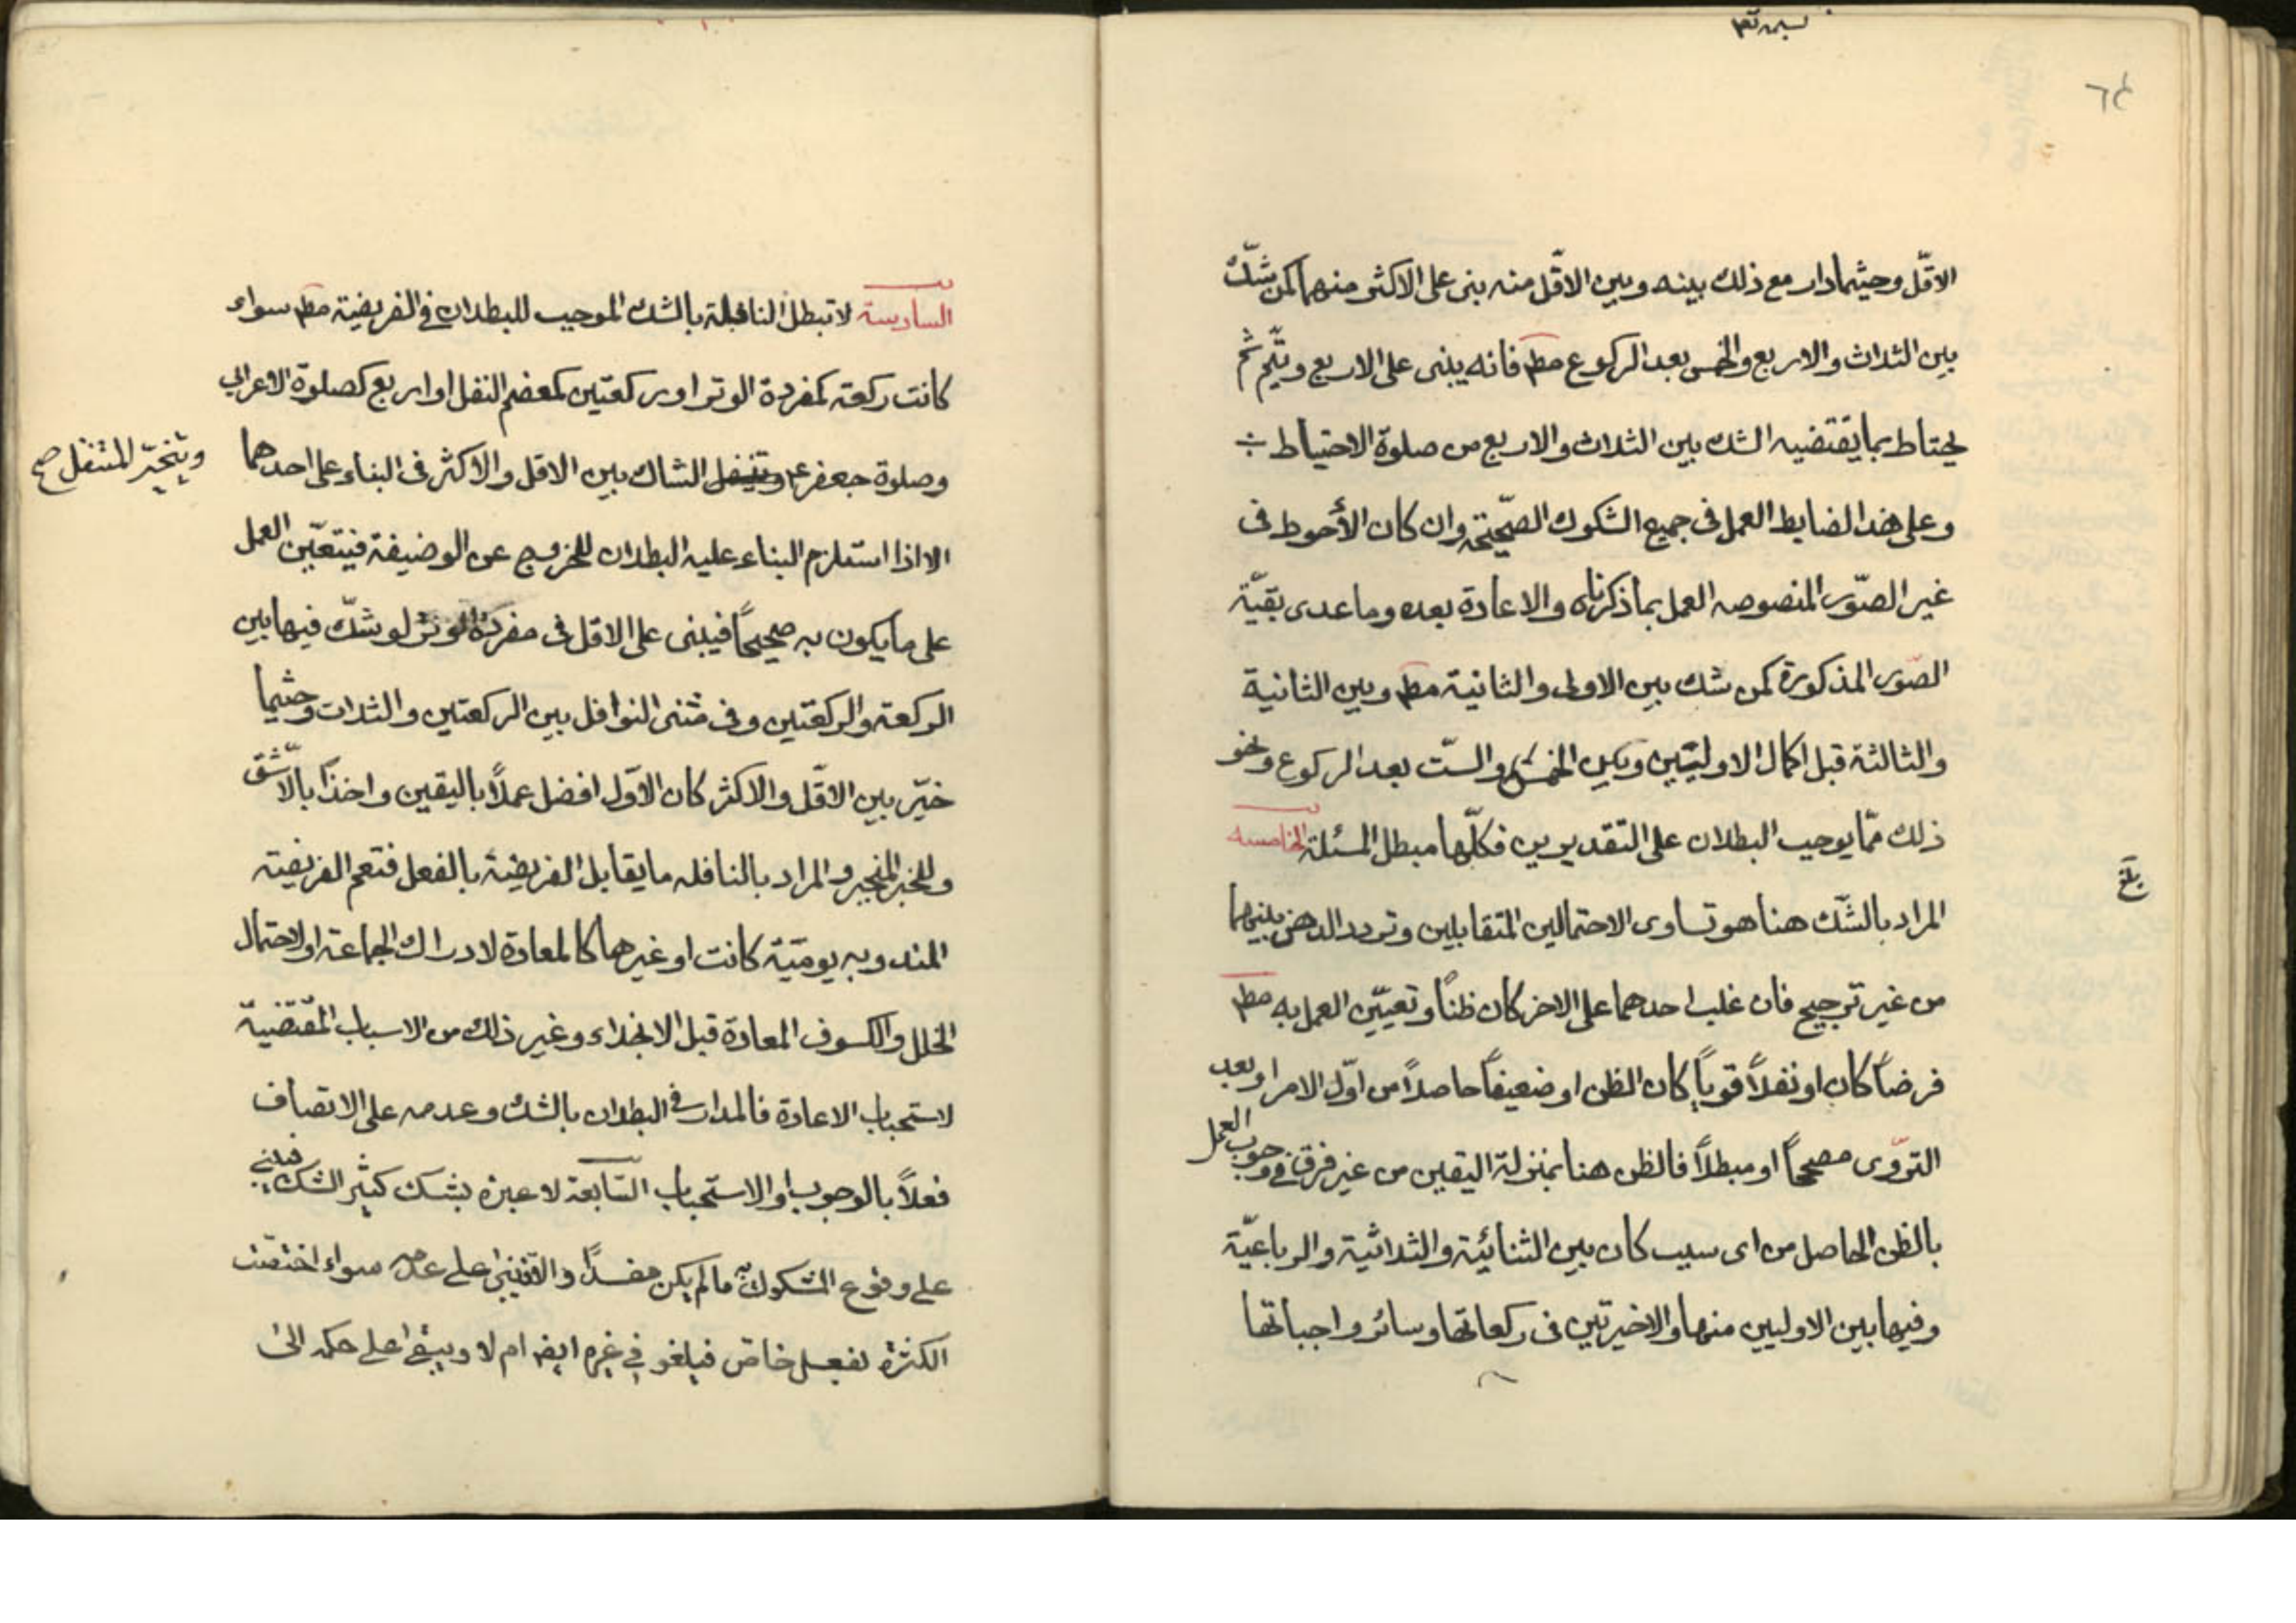 ٦٤
الاقّل وحيثما دار مع ذلك بينه وبين الاقّل منه بنى على الاكثر منهما كمن شكّ
بين الثلاث والاربع والخمس بعد الركوع مط فانه يبنى على الاربع ويتّم ثم
يحتاط بما يقتضيه الشك بين الثلاث والاربع من صلوة الاحتياط
وعلى هذا الضابط العمل فى جميع الشكوك الصّحيحة وان كان الأحوط فى
غير الصّور المنصوصه العمل بما ذكرناه والاعادة بعده وما عدى بقيّة
الصّور المذكورة كمن شك بين الاولى والثانية مط وبين الثانية
والثالثة قبل اكمال الاوليتين وبين الخمس والستّ بعد الركوع ونحو
ذلك ممّا يوجب البطلان على التقديرين فكلّها مبطل المسئلة الخامسه
المراد بالشّك هنا هو تساوى الاحتمالين المتقابلين وتردد الذهن بينهما
بلغ
من غير ترجيح فان غلب احدهما على الاخر كان ظنًا وتعيّن العمل به مط
فرضاً كان او نفلاً قوياً كان الظن او ضعيفاً حاصلاً من اوّل الامر او بعد
التروّى مصححاً او مبطلاً فالظن هنا بمنزلة اليقين من غير فرق فى وجوب العمل
بالظن الحاصل من اى سبب كان بين الثنائية والثلاثية والرباعيّة
وفيها بين الاوليين منها والاخيرتين فى ركعاتها وسائر واجباتها
السادسة لا تبطل النافلة بالشك الموجب للبطلان فى الفريضة مط سواء
كانت ركعة كمفردة الوتر او ركعتين كمعضم النفل او اربع كصلوة الاعرابي
وصلوة جعفر ع وتنفل الشاك بين الاقل والاكثر فى البناء على احدهما
ويتخيّر المتنفل صح
الا اذا استلزم البناء عليه البطلان للخروج عن الوضيفة فيتعيّن العمل
على ما يكون به صحيحاً فيبنى على الاقل فى مفردة الوتر لو شكّ فيها بين
الركعة والركعتين وفى مثنى النوافل بين الركعتين والثلاث وحيثما
خيّر بين الاقّل والاكثر كان الاوّل افضل عملاً باليقين واخذًا بالاشق
وللخبر المنجبر والمراد بالنافله ما يقابل الفريضة بالفعل فتعم الفريضة
المندوبه يوميّة كانت او غيرها كالمعادة لادراك الجماعة او لاحتمال
الخلل والكسوف المعادة قبل الانجلاء وغير ذلك من الاسباب المقتضية
لاستحباب الاعادة فالمدار فى البطلان بالشك وعدمه على الاتصاف
فعلاً بالوجوب او الاستحباب السّابعة لا عبرة بشك كثير الشك فيبنى
على وقوع المشكوك به ما لم يكن مفسدًا والا فيبنى على عدمه سواء اختصّت
الكثرة بفعل خاص فيلغو فى غيره ايضا ام لا ويبقى على حكم الى